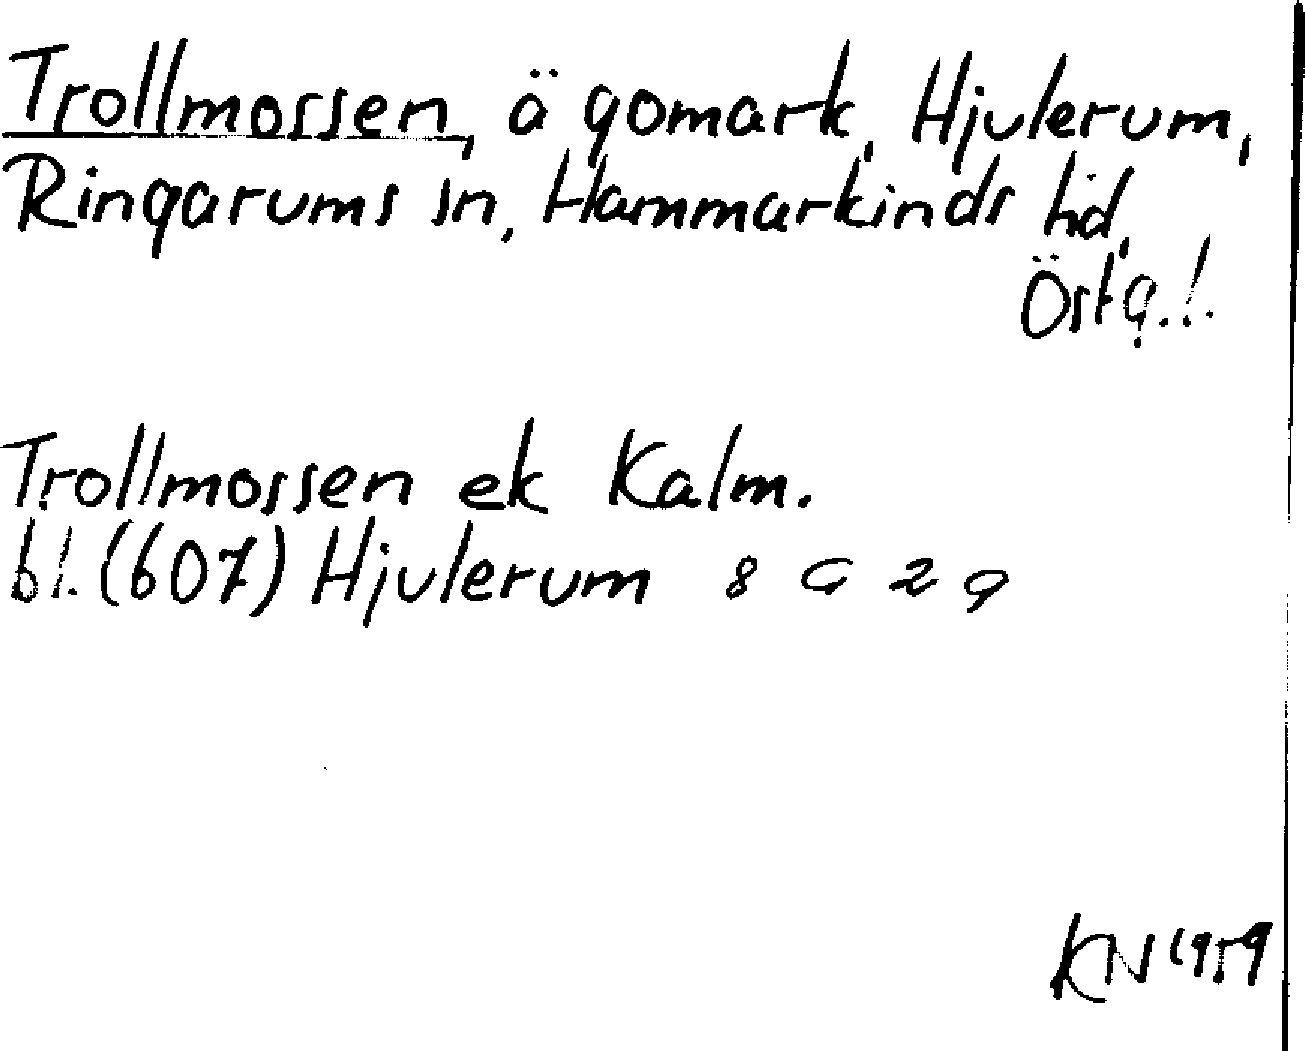 Trollmossen, ägomark, Hjulerum,
Ringarums sn, Hammarkinds hd,
Östg.!.
Trollmossen ek Kalm.
bl. (607) Hjulerum 8 G 2 g
KN 1959